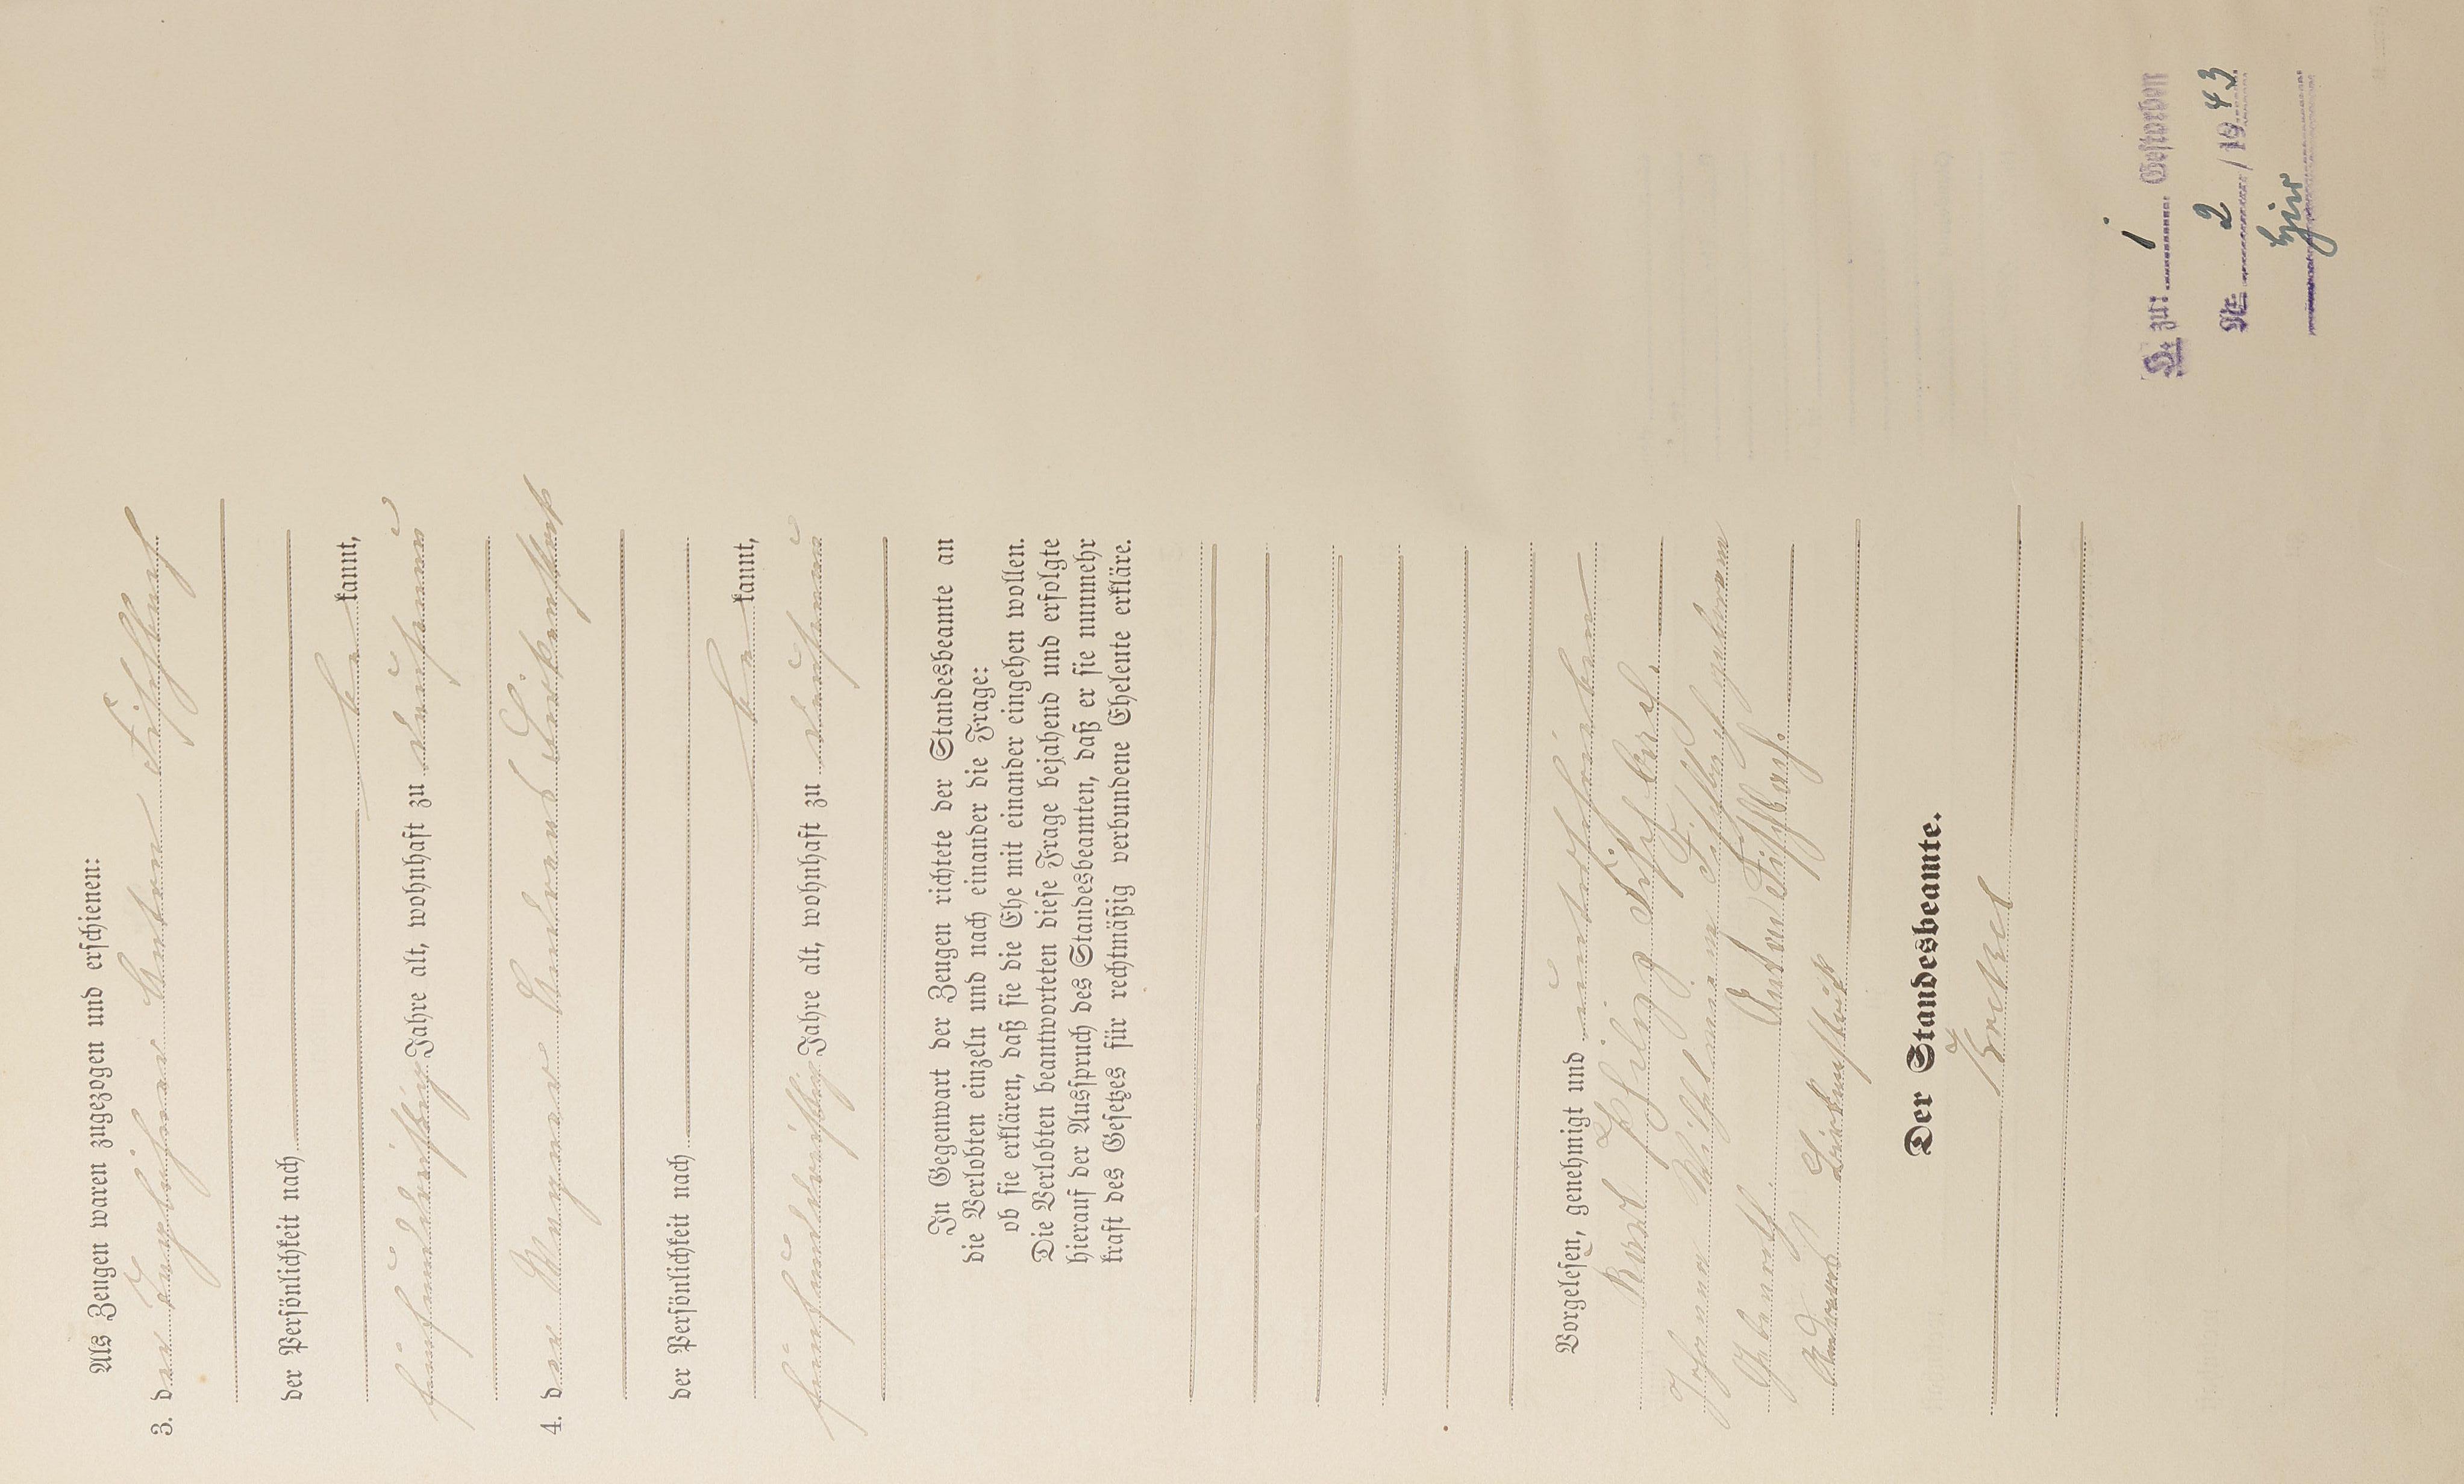 Als Zeugen waren zugezogen und erschienen:
3. der Anton Fischbach
der Persönlichkeit nach
be kannt,
fünfunddreißig Jahre alt, wohnhaft zu
4. der Andreas
der Persönlichkeit nach
be kannt,
fünfunddreißig Jahre alt, wohnhaft zu
In Gegenwart der Zeugen richtete der Standesbeamte an
die Verlobten einzeln und nach einander die Frage:
ob sie erklären, daß sie die Ehe mit einander eingehen wollen.
Die Verlobten beantworteten diese Frage bejahend und erfolgte
hierauf der Ausspruch des Standesbeamten, daß er sie nunmehr
kraft des Gesetzes für rechtmäßig verbundene Eheleute erkläre.
Vorgelesen, genehmigt und unterschrieben
Karl Philipp Fischbach.
Johanna Wilhelmine Fischbach geborene
Anton Fischbach.
Andreas
Der Standesbeamte.
D. zu: 1 Gestorben
Nr. 2 / 1943
hier